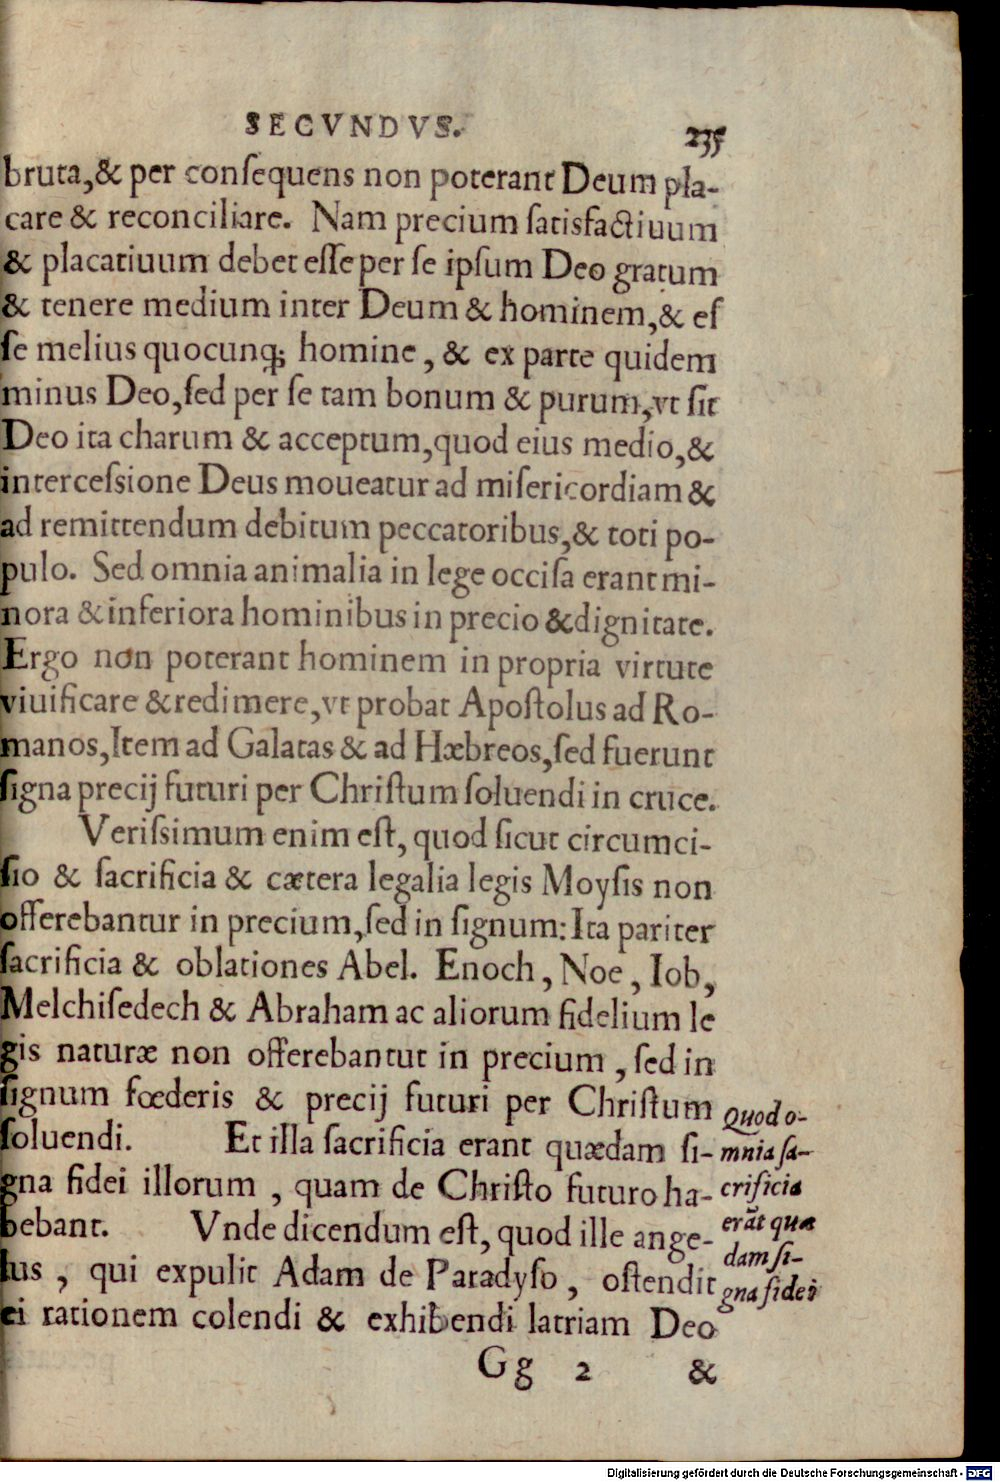 SECVNDVS. 235
bruta,& per conſequens non poterant Deum pla-
care & reconciliare. Nam precium ſatisfactiuum
& placatiuum debet eſſe per ſe ipſum Deo gratum
& tenere medium inter Deum & hominem,& eſ
ſe melius quocunq; homine, & ex parte quidem
minus Deo,ſed per ſe tam bonum & purum,vt ſit
Deo ita charum & acceptum,quod eius medio,&
interceſsione Deus moueatur ad miſericordiam &
ad remittendum debitum peccatoribus,& toti po-
pulo. Sed omnia animalia in lege occiſa erant mi-
nora & inferiora hominibus in precio & dignitate.
Ergo non poterant hominem in propria virtute
viuificare & redimere,vt probat Apoſtolus ad Ro-
manos,Item ad Galatas & ad Hæbreos,ſed fuerunt
ſigna precij futuri per Chriſtum ſoluendi in cruce.
Veriſsimum enim eſt, quod ſicut circumci-
ſio & ſacrificia & cætera legalia legis Moyſis non
offerebantur in precium,ſed in ſignum: Ita pariter
ſacrificia & oblationes Abel. Enoch, Noe, Iob,
Melchiſedech & Abraham ac aliorum fidelium le
gis naturæ non offerebantut in precium, ſed in
ſignum fœderis & precij futuri per Chriſtum
ſoluendi. Et illa ſacrificia erant quædam ſi-
gna fidei illorum, quam de Chriſto futuro ha-
bebant. Vnde dicendum eſt, quod ille ange-
lus, qui expulit Adam de Paradyſo, oſtendit
ei rationem colendi & exhibendi latriam Deo
Gg 2 &
Quod o-
mnia ſa-
crificia
erāt quæ
dam ſi-
gna fidei
Digitalisierung gefördert durch die Deutsche Forschungsgemeinschaft - DFG